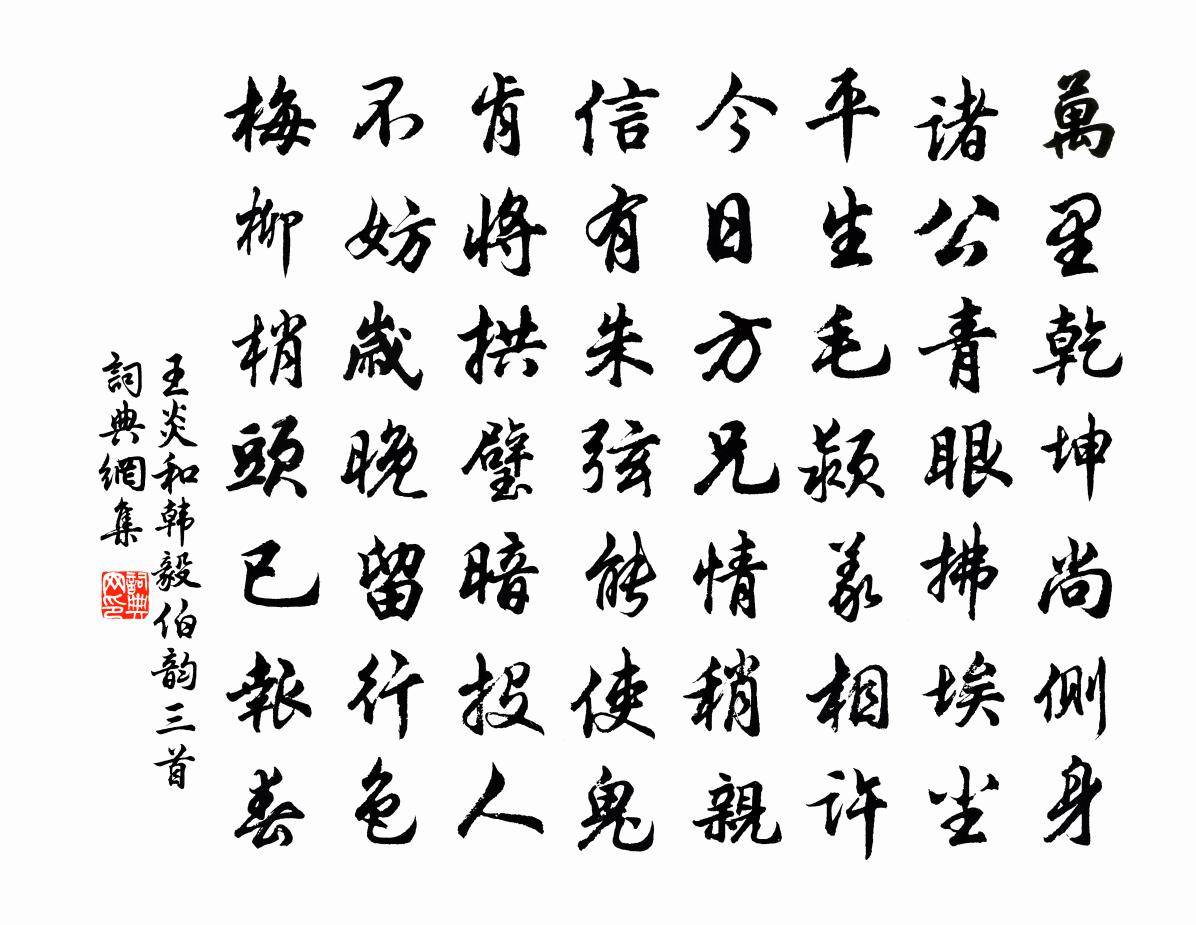 萬里乾坤尚側身
诸公青眼拂埃尘
平生毛颖羕相许
今日方兄情稍親
信有朱弦能使鬼
肯將拱璧暗投人
不妨歲晚留行色
梅柳梢頭已報春
王炎和韩毅伯韵三首
詞典網集
詞典网印